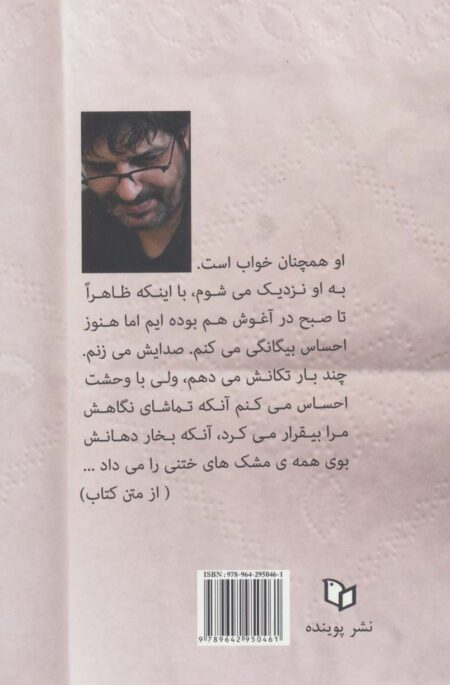 او همچنان خواب است.
به او نزدیک می شوم، با اینکه ظاهراً
تا صبح در آغوش هم بوده ایم اما هنوز
احساس بیگانگی می کنم. صدایش می زنم.
چند بار تکانش می دهم، ولی با وحشت
احساس می کنم آنکه تماشای نگاهش
مرا بیقرار می کرد، آنکه بخار دهانش
بوی همه ی مشک های ختنی را می داد ...
( از متن کتاب)
ISBN : 978-964-295046-1
9 789642 950461
نشر پوینده